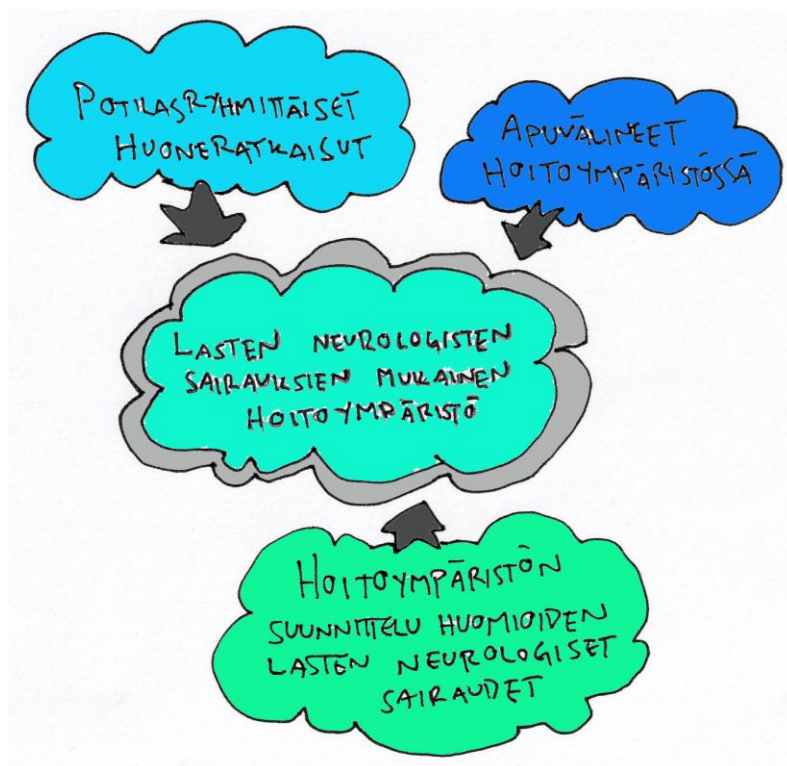 POTILASRYHMITTÄISET
HUONERATKAISUT
APUVÄLINEET
HOITOYMPÄRISTÖSSÄ
LASTEN NEUROLOGISTEN
SAIRAUKSIEN MUKAINEN
HOITOYMPÄRISTÖ
HOITOYMPÄRISTÖN
SUUNNITTELU HUOMIOIDEN
LASTEN NEUROLOGISET
SAIRAUDET